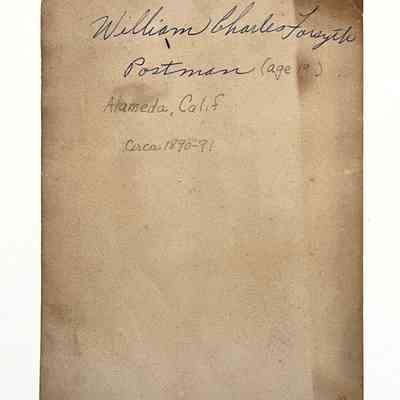 William Charles Forsyth
Postman (age 19)
Alameda, Calif
Circa 1890-91